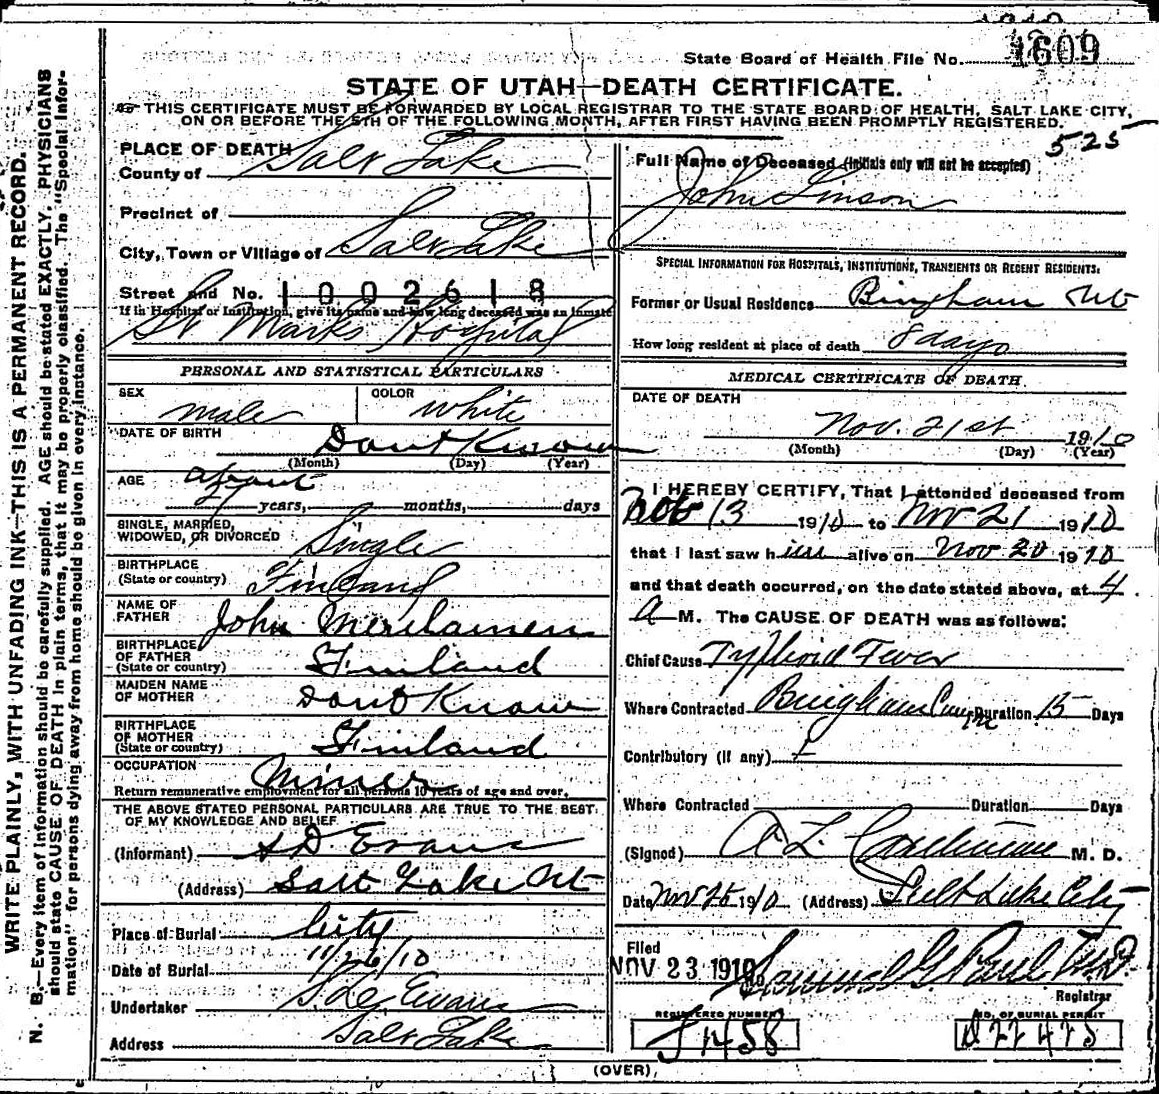 State Board of Health File No. 1609
STATE OF UTAH—DEATH CERTIFICATE.
THIS CERTIFICATE MUST BE FORWARDED BY LOCAL REGISTRAR TO THE STATE BOARD OF HEALTH, SALT LAKE CITY,
ON OR BEFORE THE 5TH OF THE FOLLOWING MONTH, AFTER FIRST HAVING BEEN PROMPTLY REGISTERED.
525
WRITE PLAINLY, WITH UNFADING INK—THIS IS A PERMANENT RECORD.
N. B.—Every item of information should be carefully supplied. AGE should be stated EXACTLY. PHYSICIANS
should state CAUSE OF DEATH in plain terms, that it may be properly classified. The "Special Infor-
mation" for persons dying away from home should be given in every instance.
PLACE OF DEATH
County of Salt Lake
Precinct of
City, Town or Village of Salt Lake
Street and No. 1002618
If in Hospital or Institution, give its name and how long deceased was an inmate
St Marks Hospital
PERSONAL AND STATISTICAL PARTICULARS
SEX male COLOR white
DATE OF BIRTH Dont Know
(Month) (Day) (Year)
AGE
years, months, days
SINGLE, MARRIED,
WIDOWED, OR DIVORCED Single
BIRTHPLACE
(State or country) Finland
NAME OF
FATHER John
BIRTHPLACE
OF FATHER
(State or country) Finland
MAIDEN NAME
OF MOTHER Dont Know
BIRTHPLACE
OF MOTHER
(State or country) Finland
OCCUPATION Miner
Return remunerative employment for all persons 10 years of age and over.
THE ABOVE STATED PERSONAL PARTICULARS ARE TRUE TO THE BEST
OF MY KNOWLEDGE AND BELIEF
(Informant) S D. Evans
(Address) Salt Lake Ut
Place of Burial City
Date of Burial 11/26/10
Undertaker S. D. Evans
Address Salt Lake
Full Name of Deceased (Initials only will not be accepted)
John Linson
SPECIAL INFORMATION FOR HOSPITALS, INSTITUTIONS, TRANSIENTS OR RECENT RESIDENTS:
Former or Usual Residence Bingham Ut
How long resident at place of death 8 days
MEDICAL CERTIFICATE OF DEATH
DATE OF DEATH
Nov. 21st 1910
(Month) (Day) (Year)
I HEREBY CERTIFY, That I attended deceased from
Nov 13 1910 to Nov 21 1910
that I last saw him alive on Nov 20 1910
and that death occurred, on the date stated above, at 4
A M. The CAUSE OF DEATH was as follows:
Chief Cause Typhoid Fever
Where Contracted Bingham Canyon Duration 15 Days
Contributory (if any)
Where Contracted Duration Days
(Signed) A. L. M. D.
Date Nov 1910 (Address) Salt Lake City
Filed
NOV 23 1910 Samuel G Paul M.D.
Registrar
REGISTERED NUMBER
J1458
NO. OF BURIAL PERMIT
(OVER)